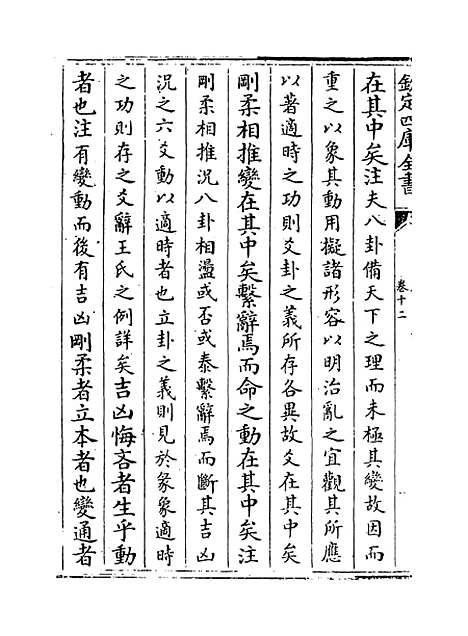 欽定四庫全書
卷十二
在其中矣注夫八卦備天下之理而未極其變故因而
重之以象其動用擬諸形容以明治亂之宜觀其所應
以著適時之功則爻卦之義所存各異故爻在其中矣
剛柔相推變在其中矣繫辭焉而命之動在其中矣注
剛柔相推況八卦相盪或否或泰繫辭焉而斷其吉凶
況之六爻動以適時者也立卦之義則見於彖象適時
之功則存之爻辭王氏之例詳矣吉凶悔吝者生乎動
者也注有變動而後有吉凶剛柔者立本者也變通者